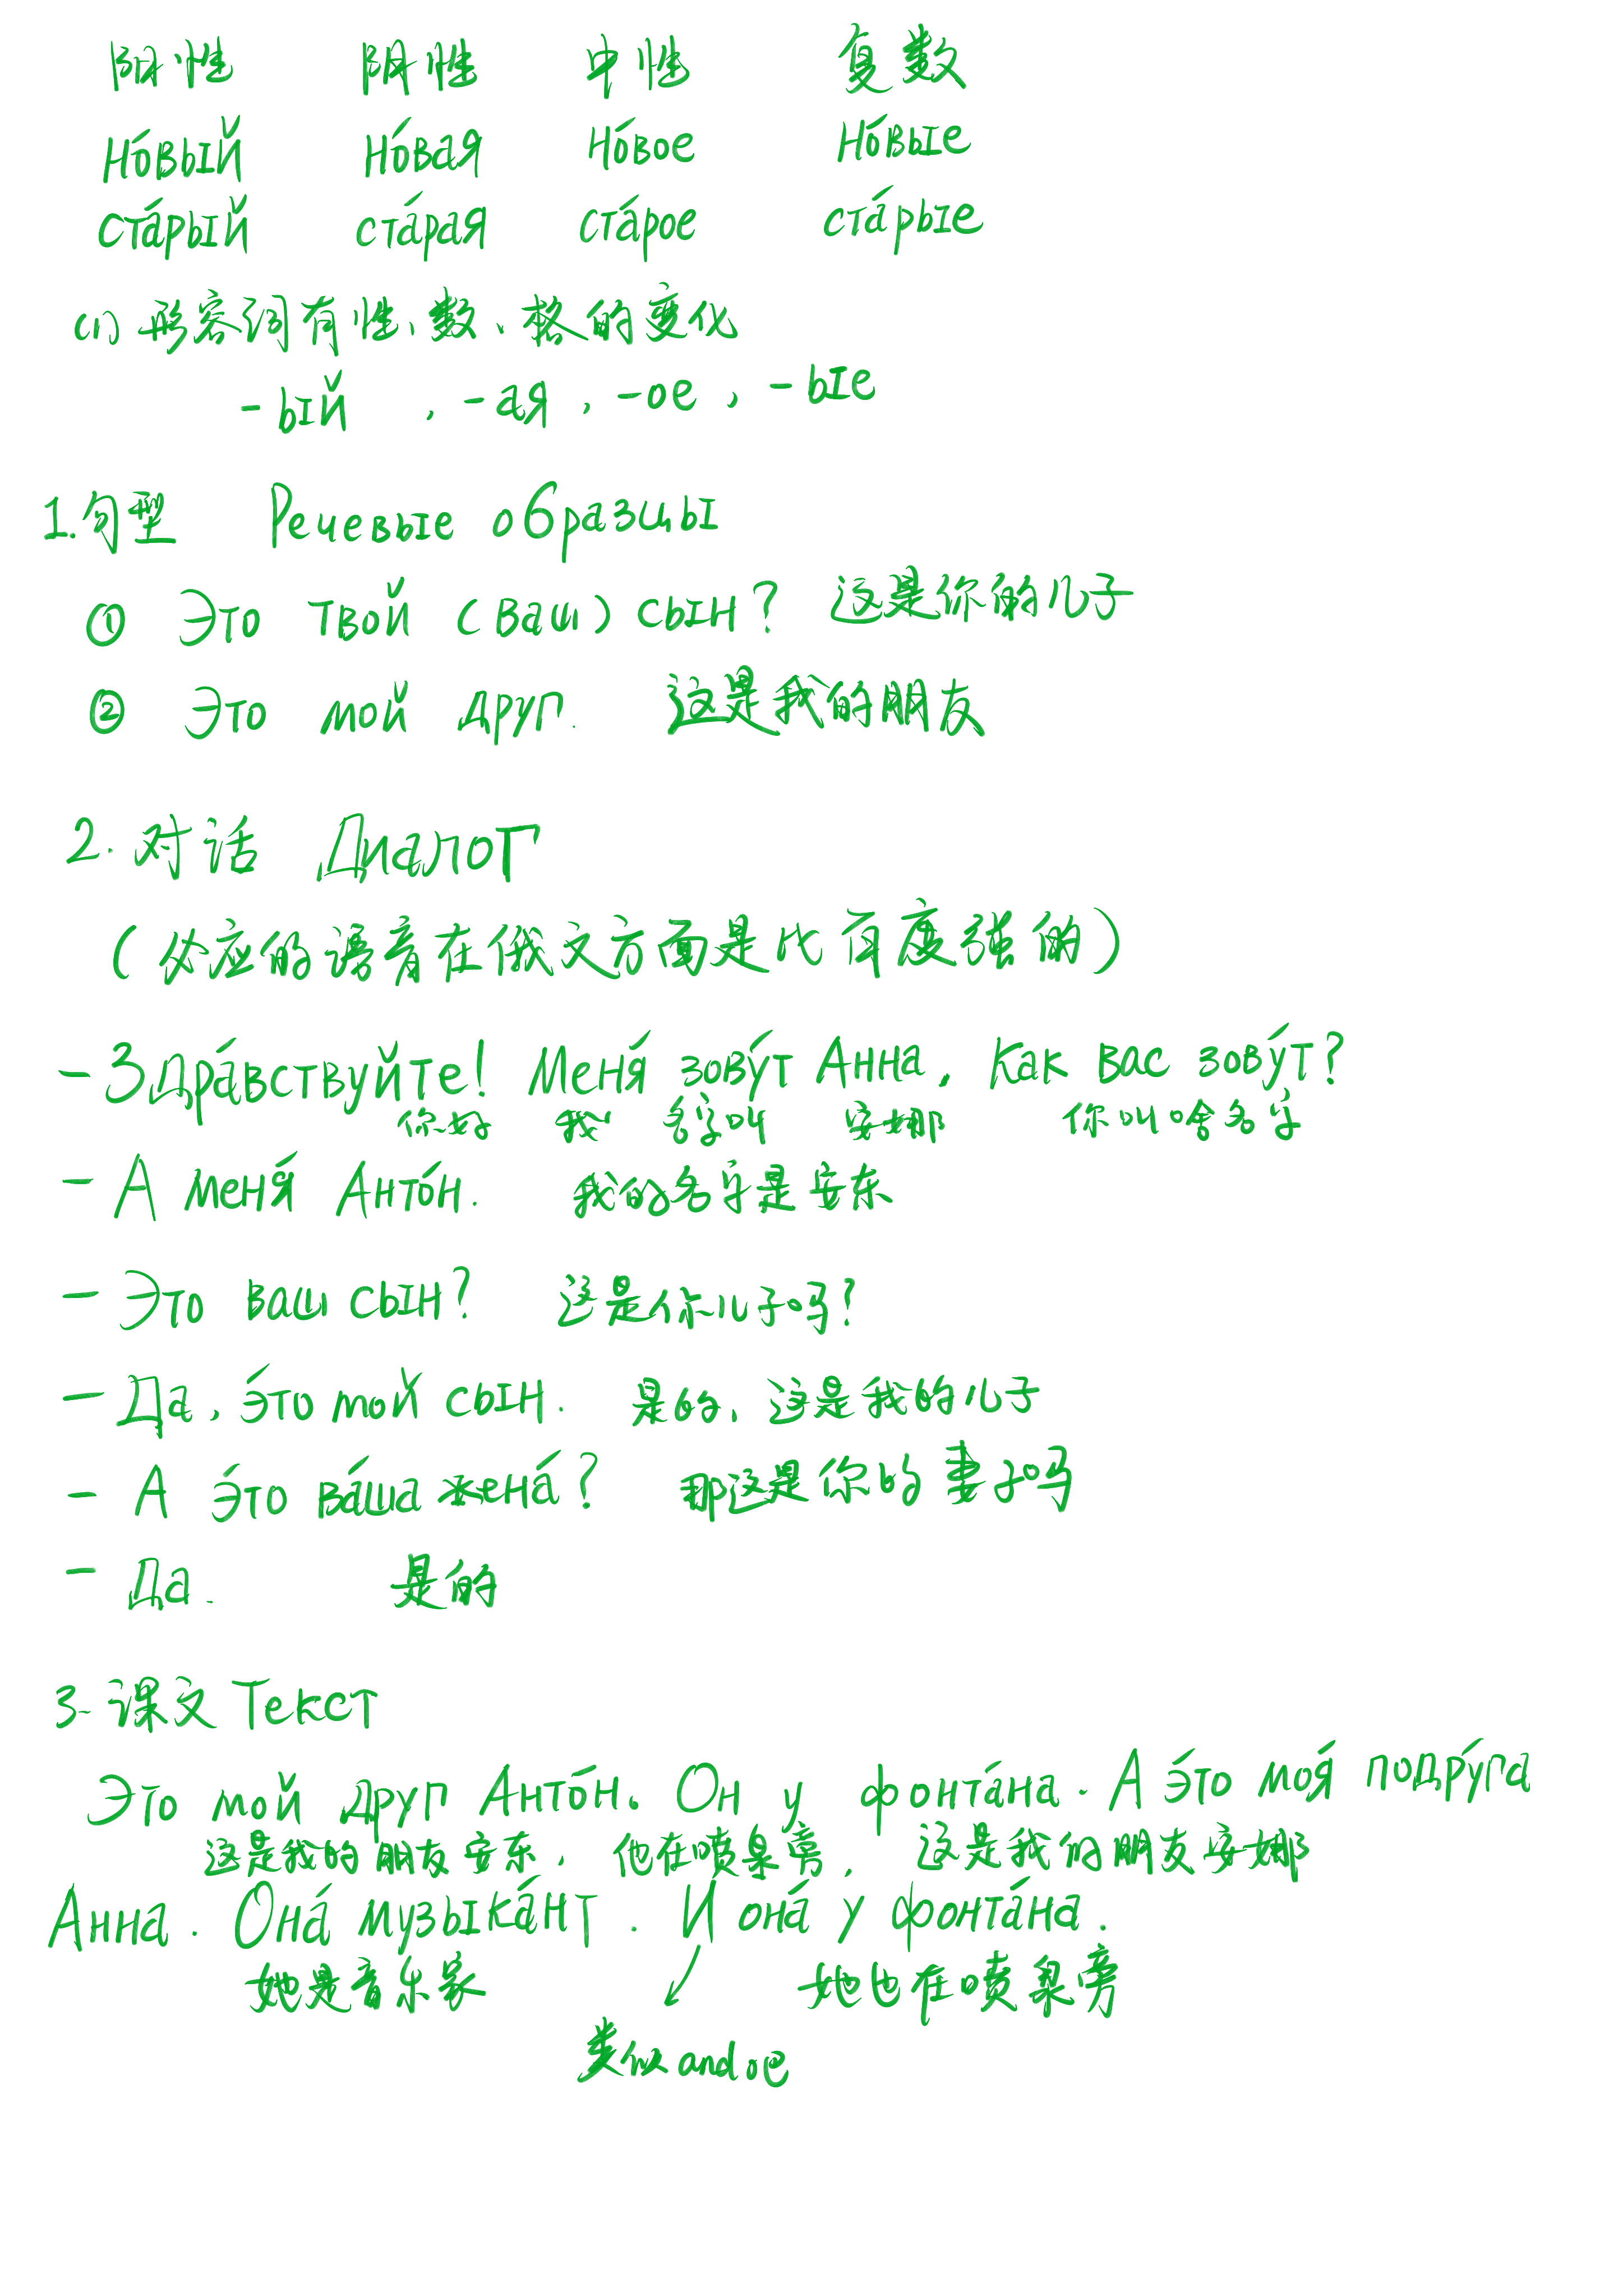 阳性 阴性 中性 复数
но́вый но́вая но́вое но́вые
ста́рый ста́рая ста́рое ста́рые
(1) 形容词有性、数、格的变化
-ый , -ая , -ое , -ые
1.句型 Речевые образцы
① Это твой (ваш) сын? 这是你的儿子
② Это мой друг. 这是我的朋友
2. 对话 Диалог
(必应的语音在俄文方面是比百度强的)
- Здра́вствуйте! Меня́ зову́т Анна, Как вас зову́т?
你好 我 名字叫 安娜 你叫啥名字
- А меня́ Анто́н. 我的名字是安东
- Это ваш сын? 这是你儿子吗?
- Да, э́то мой сын. 是的, 这是我的儿子
- А э́то ва́ша жена́? 那这是你的妻子吗
- Да. 是的
3. 课文 Текст
Это мой друг Анто́н. Он у фонта́на. А э́то моя́ подру́га
这是我的朋友安东, 他在喷泉旁, 这是我的朋友安娜
Анна. Она́ музыка́нт. И она́ у фонта́на.
她是音乐家 她也在喷泉旁
类似and